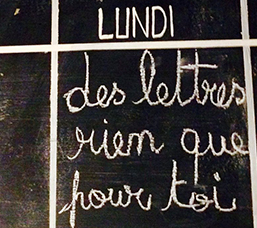 LUNDI
des lettres
rien que
pour toi